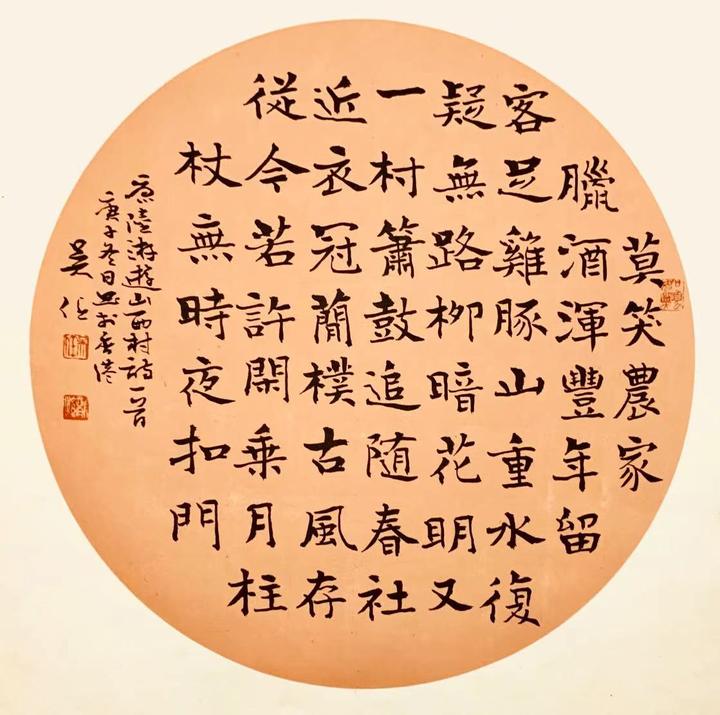 莫笑農家
臘酒渾豐年留
客足雞豚山重水復
疑無路柳暗花明又
一村簫鼓追随春社
近衣冠簡樸古風存
從今若許閑乘月柱
杖無時夜扣門
陸游遊山西村詩一首
庚子冬日書於香港
吴